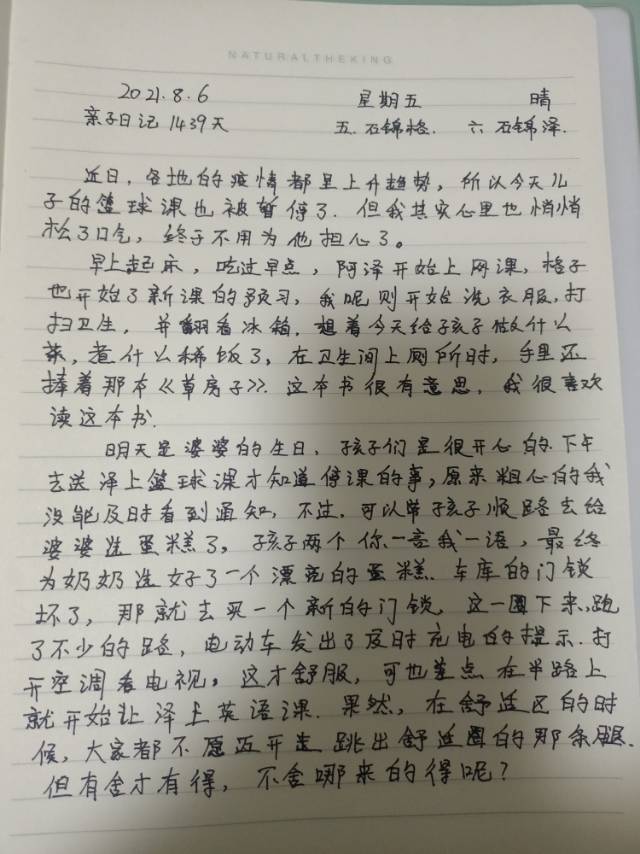 NATURALTHEKING
2021.8.6 星期五 晴
亲子日记1439天 五.石锦格. 六 石锦泽.
近日,各地的疫情都呈上升趋势,所以今天儿
子的篮球课也被暂停了.但我其实心里也悄悄
松了口气,终于不用为他担心了。
早上起床,吃过早点,阿泽开始上网课,格子
也开始了新课的预习,我呢则开始洗衣服,打
扫卫生,并翻看冰箱.想着今天给孩子做什么
菜,煮什么稀饭了,在卫生间上厕所时,手里还
捧着那本《草房子》.这本书很有意思,我很喜欢
读这本书.
明天是婆婆的生日,孩子们是很开心的.下午
去送泽上篮球课才知道停课的事,原来粗心的我
没能及时看到通知,不过.可以带孩子顺路去给
婆婆选蛋糕了,孩子两个你一言我一语,最终
为奶奶选好了一个漂亮的蛋糕.车库的门锁
坏了,那就去买一个新的门锁.这一圈下来,跑
了不少的路,电动车发出了及时充电的提示.打
开空调看电视,这才舒服,可也差点在半路上
就开始让泽上英语课.果然,在舒适区的时
候,大家都不愿迈开走跳出舒适圈的那条腿.
但有舍才有得,不舍哪来的得呢?